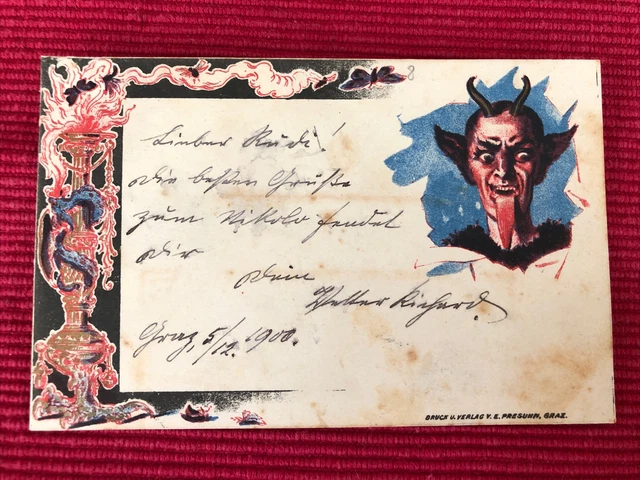 Lieber Rudi!
die besten Grüße
zum Nikolo sendet
dir
dein
Vetter Richard
Graz, 5/12. 1900.
8
DRUCK U. VERLAG V. E. PRESUHN, GRAZ.